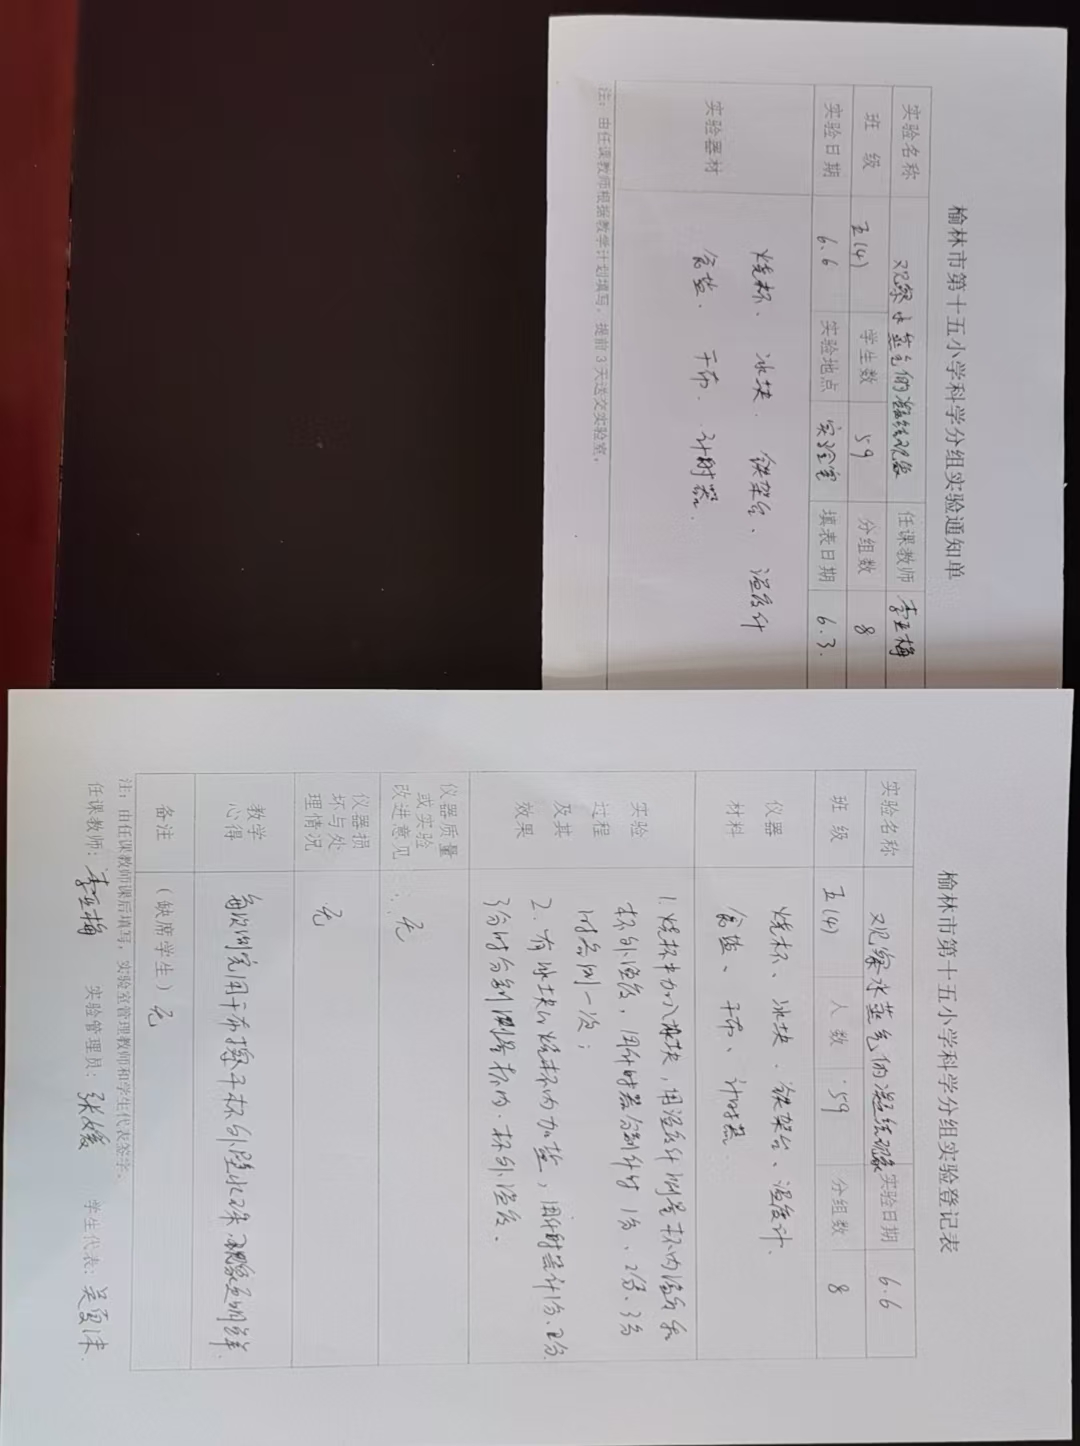 榆林市第十五小学科学分组实验通知单
实验名称 观察水蒸气的凝结现象 任课教师 李亚梅
班 级 五(4) 学生数 59 分组数 8
实验日期 6.6 实验地点 实验室 填表日期 6.3.
实验器材 烧杯、 冰块、 铁架台、 温度计
食盐、 干布、 计时器.
注：由任课教师根据教学计划填写，提前3天送交实验室。
榆林市第十五小学科学分组实验登记表
实验名称 观察水蒸气的凝结现象 实验日期 6.6
班 级 五(4) 人 数 59 分组数 8
仪器材料 烧杯、冰块、铁架台、温度计、
食盐、干布、计时器
实验过程及其效果 1.烧杯中加入冰块，用温度计测量杯内温度和
杯外温度，用计时器分别计时1分、2分、3分
时各测一次；
2.有冰块的烧杯内加盐，用计时器计1分、2分、
3分时分别测量杯内、杯外温度.
仪器质量或实验改进意见 无
仪器损坏与处理情况 无
教学心得 每次测完用干布擦干杯外壁水珠,现象更明鲜
备注 （缺席学生）无
注：由任课教师课后填写，实验室管理教师和学生代表签字。
任课教师：李亚梅 实验管理员：张媛 学生代表：吴